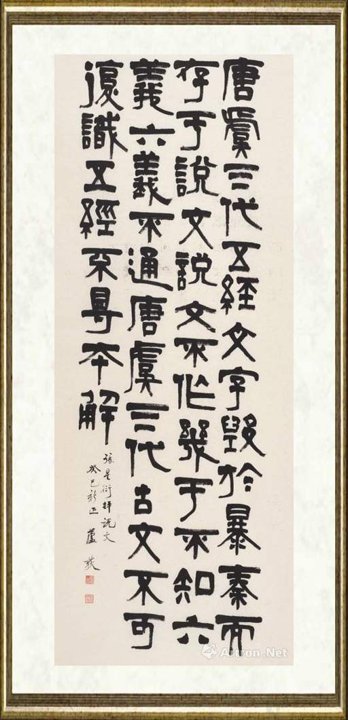 唐虞三代五經文字毀於暴秦而
存于說文說文不作幾于不知六
義六義不通唐虞三代古文不可
復識五經不得本解
孫星衍釋說文
癸巳新正
Artron.Net